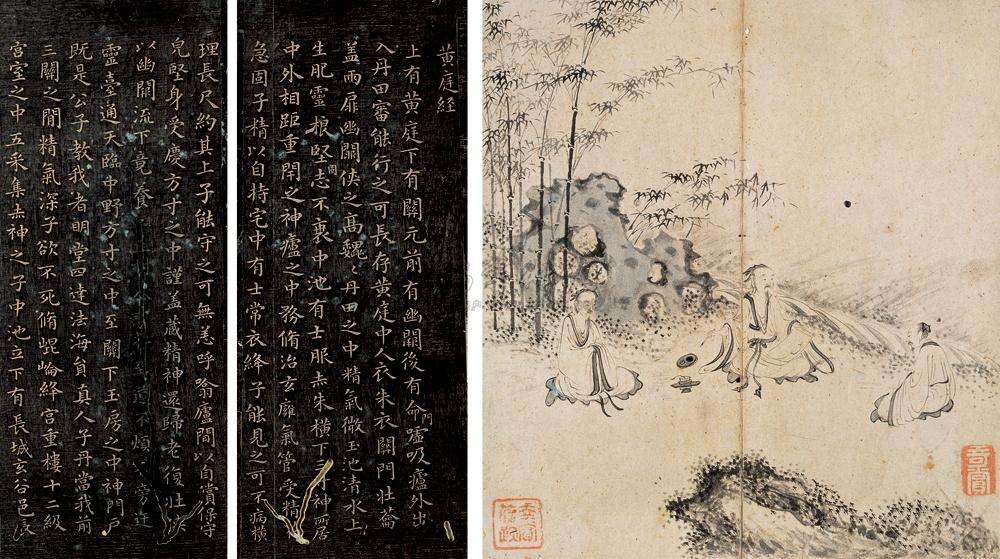 黃庭経
上有黃庭下有關元前有幽關後有命門嘘吸廬外出
入丹田審能行之可長存黃庭中人衣朱衣關門壮蘥
盖兩扉幽關俠之髙魏〻丹田之中精氣微玉池清水上
生肥靈根堅志不衰中池有士服赤朱橫下三寸神所居
中外相距重閇之神廬之中務脩治玄廱氣管受精
急固子精以自持宅中有士常衣絳子能見之可不病橫
理長尺約其上子能守之可無恙呼噏廬間以自賞保守
皃堅身受慶方寸之中謹盖藏精神還歸老復壮
以幽關流下竟養
靈臺通天臨中野方寸之中至關下玉房之中神門戶
既是公子教我者明堂四達法海貟真人子丹當我前
三關之間精氣深子欲不死脩崐崘絳宮重樓十二級
宮室之中五采集赤神之子中池立下有長城玄谷邑長